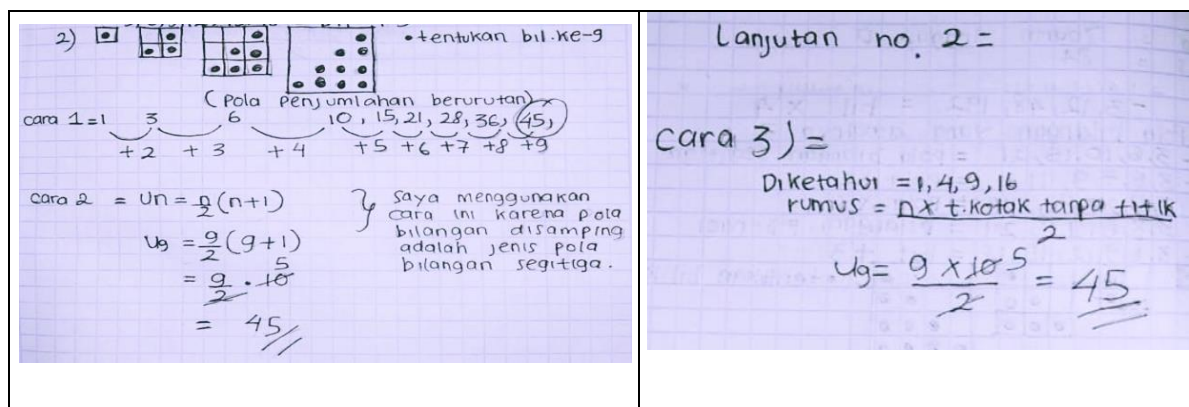 2)
• tentukan bil. ke-9
(Pola Penjumlahan berurutan)
cara 1 = 1 3 6 10, 15, 21, 28, 36, 45,
+2 +3 +4 +5 +6 +7 +8 +9
cara 2 = Un = n/2 (n+1)
U9 = 9/2 (9+1)
= 9/2 . 10 5
= 45
saya menggunakan
cara ini karena pola
bilangan disamping
adalah jenis pola
bilangan segitiga.
Lanjutan no. 2 =
cara 3) =
Diketahui = 1, 4, 9, 16
rumus = n x t.kotak tanpa +1+1k
2
U9 = 9 x 10 5 / 2 = 45